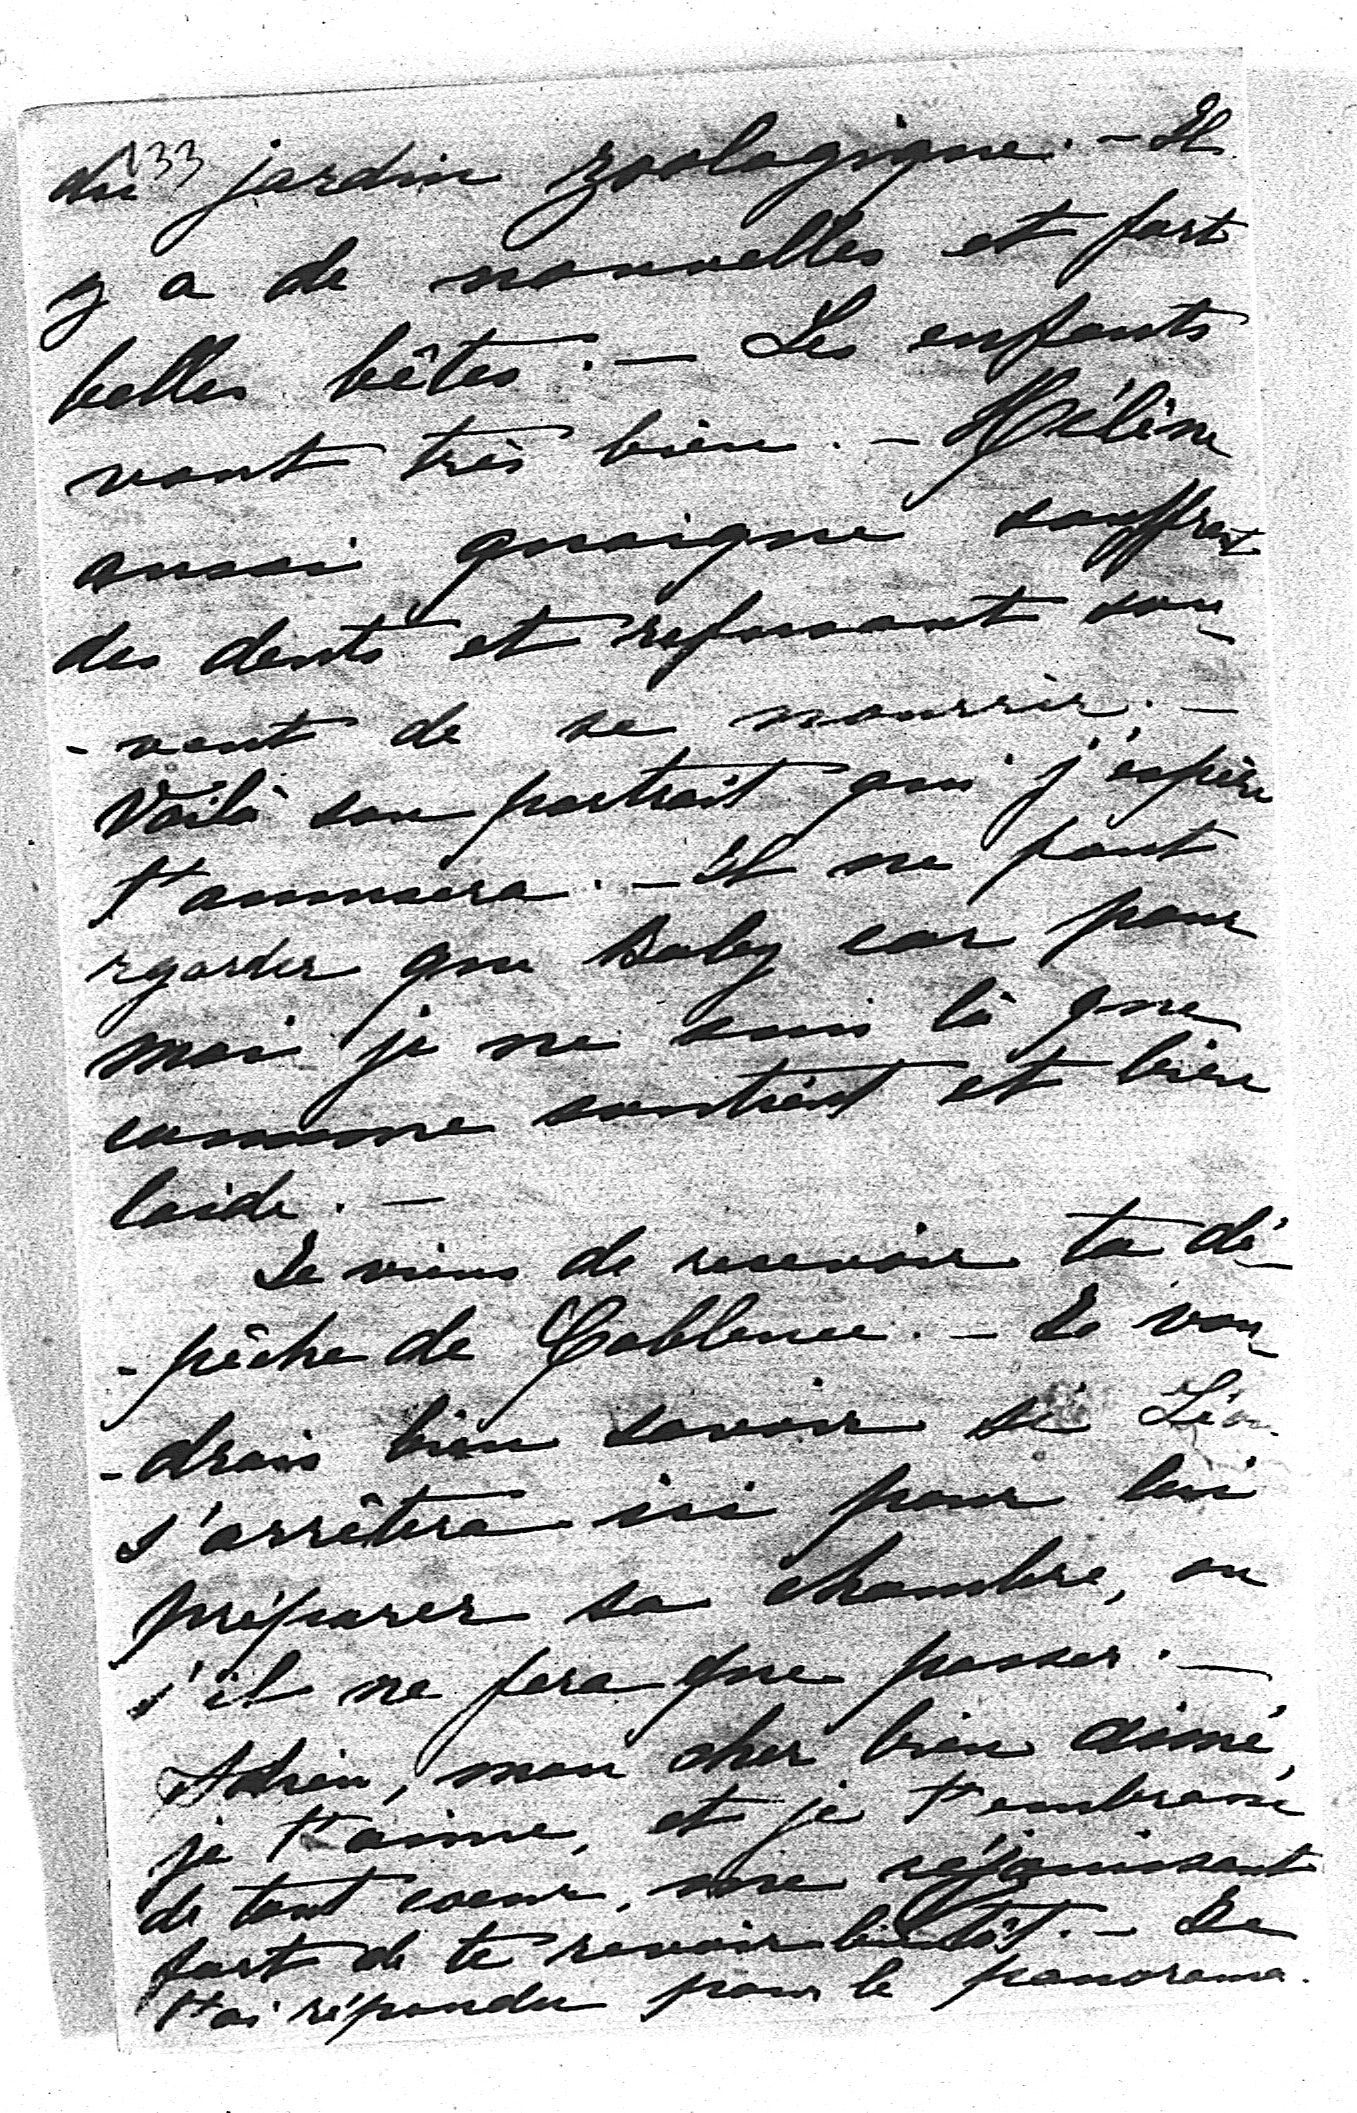 133
du jardin zoologique. — Il
y a de nouvelles et fort
belles bêtes. — Les enfants
vont très bien. — Hélène
aussi quoique souffrant
des dents et refusant sou-
-vent de se nourrir. —
Voilà son portrait qui j'espère
t'amusera. — Il ne faut
rgarder que Baby car pour
moi je ne suis là que
comme soutient et bien
laide. —
Je viens de recevoir ta dé-
-pêche de Coblence. — Je vou-
-drais bien savoir si Léon
s'arrêtera ici pour lui
préparer sa chambre, ou
s'il ne fera que passer. —
Adieu, mon cher bien aimé,
je t'aime, et je t'embrasse
de tout coeur, me réjouissant
fort de te revoir bientôt. — Je
t'ai répondu pour le panorama.